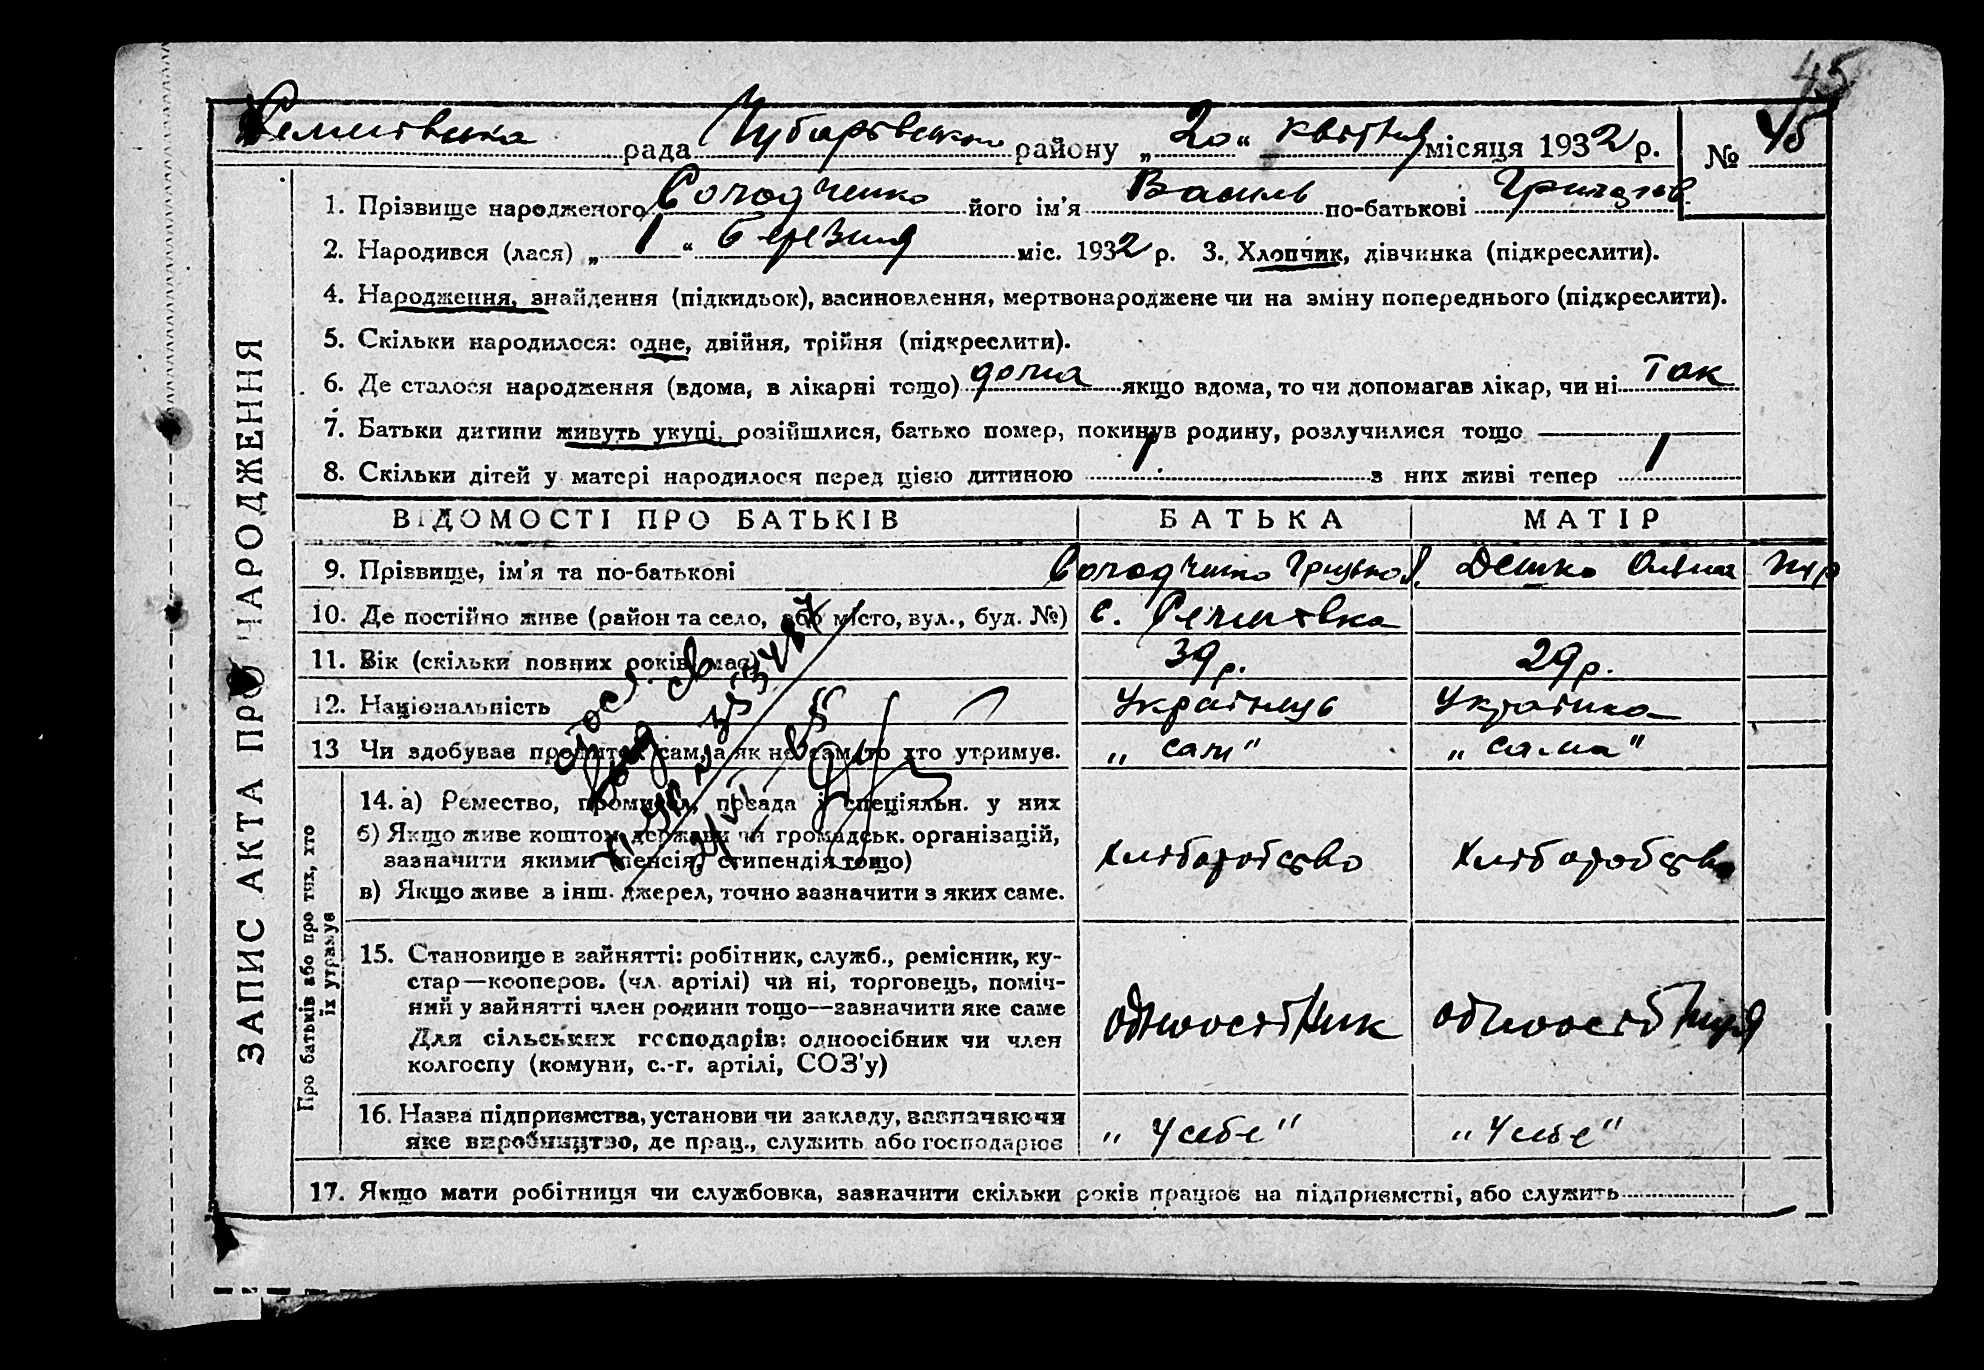 45
рада Чубарівського району „20“ квітня місяця 1932 р. № 45
1. Прізвище народженого Солодченко його ім'я Василь по-батькові
2. Народився (лася) „1“ березня міс. 1932 р. 3. Хлопчик, дівчинка (підкреслити).
4. Народження, знайдення (підкидьок), васиновлення, мертвонароджене чи на зміну попереднього (підкреслити).
5. Скільки народилося: одне, двійня, трійня (підкреслити).
6. Де сталося народження (вдома, в лікарні тощо) дома якщо вдома, то чи допомагав лікар, чи ні так
7. Батьки дитини живуть укупі, розійшлися, батько помер, покинув родину, розлучилися тощо
8. Скільки дітей у матері народилося перед цією дитиною 1 з них живі тепер 1
ЗАПИС АКТА ПРО НАРОДЖЕННЯ
ВІДОМОСТІ ПРО БАТЬКІВ БАТЬКА МАТІР
9. Прізвище, ім'я та по-батькові Солодченко Грицько
10. Де постійно живе (район та село, або місто, вул., буд. №) с.
11. Вік (скільки повних років має) 39 р. 29 р.
12. Національність Українець Українка
13 Чи здобуває прожиток сам, а як не сам, то хто утримує. „сам“ „сама“
Про батьків або про тих, хто
їх утримує
14. а) Ремество, промисел, посада і спеціяльн. у них
б) Якщо живе коштом держави чи громадськ. організацій,
зазначити якими (пенсія, стипендія тощо)
хліборобство хліборобство
в) Якщо живе з інш. джерел, точно зазначити з яких саме.
15. Становище в зайнятті: робітник, служб., ремісник, ку-
стар—кооперов. (чл. артілі) чи ні, торговець, поміч-
ний у зайнятті член родини тощо—зазначити яке саме
одноосібник одноосібниця
Для сільських господарів: одноосібник чи член
колгоспу (комуни, с.-г. артілі, СОЗ'у)
16. Назва підприємства, установи чи закладу, зазначаючи
яке виробництво, де прац., служить або господарює „У себе“ „У себе“
17. Якщо мати робітниця чи службовка, зазначити скільки років працює на підприємстві, або служить